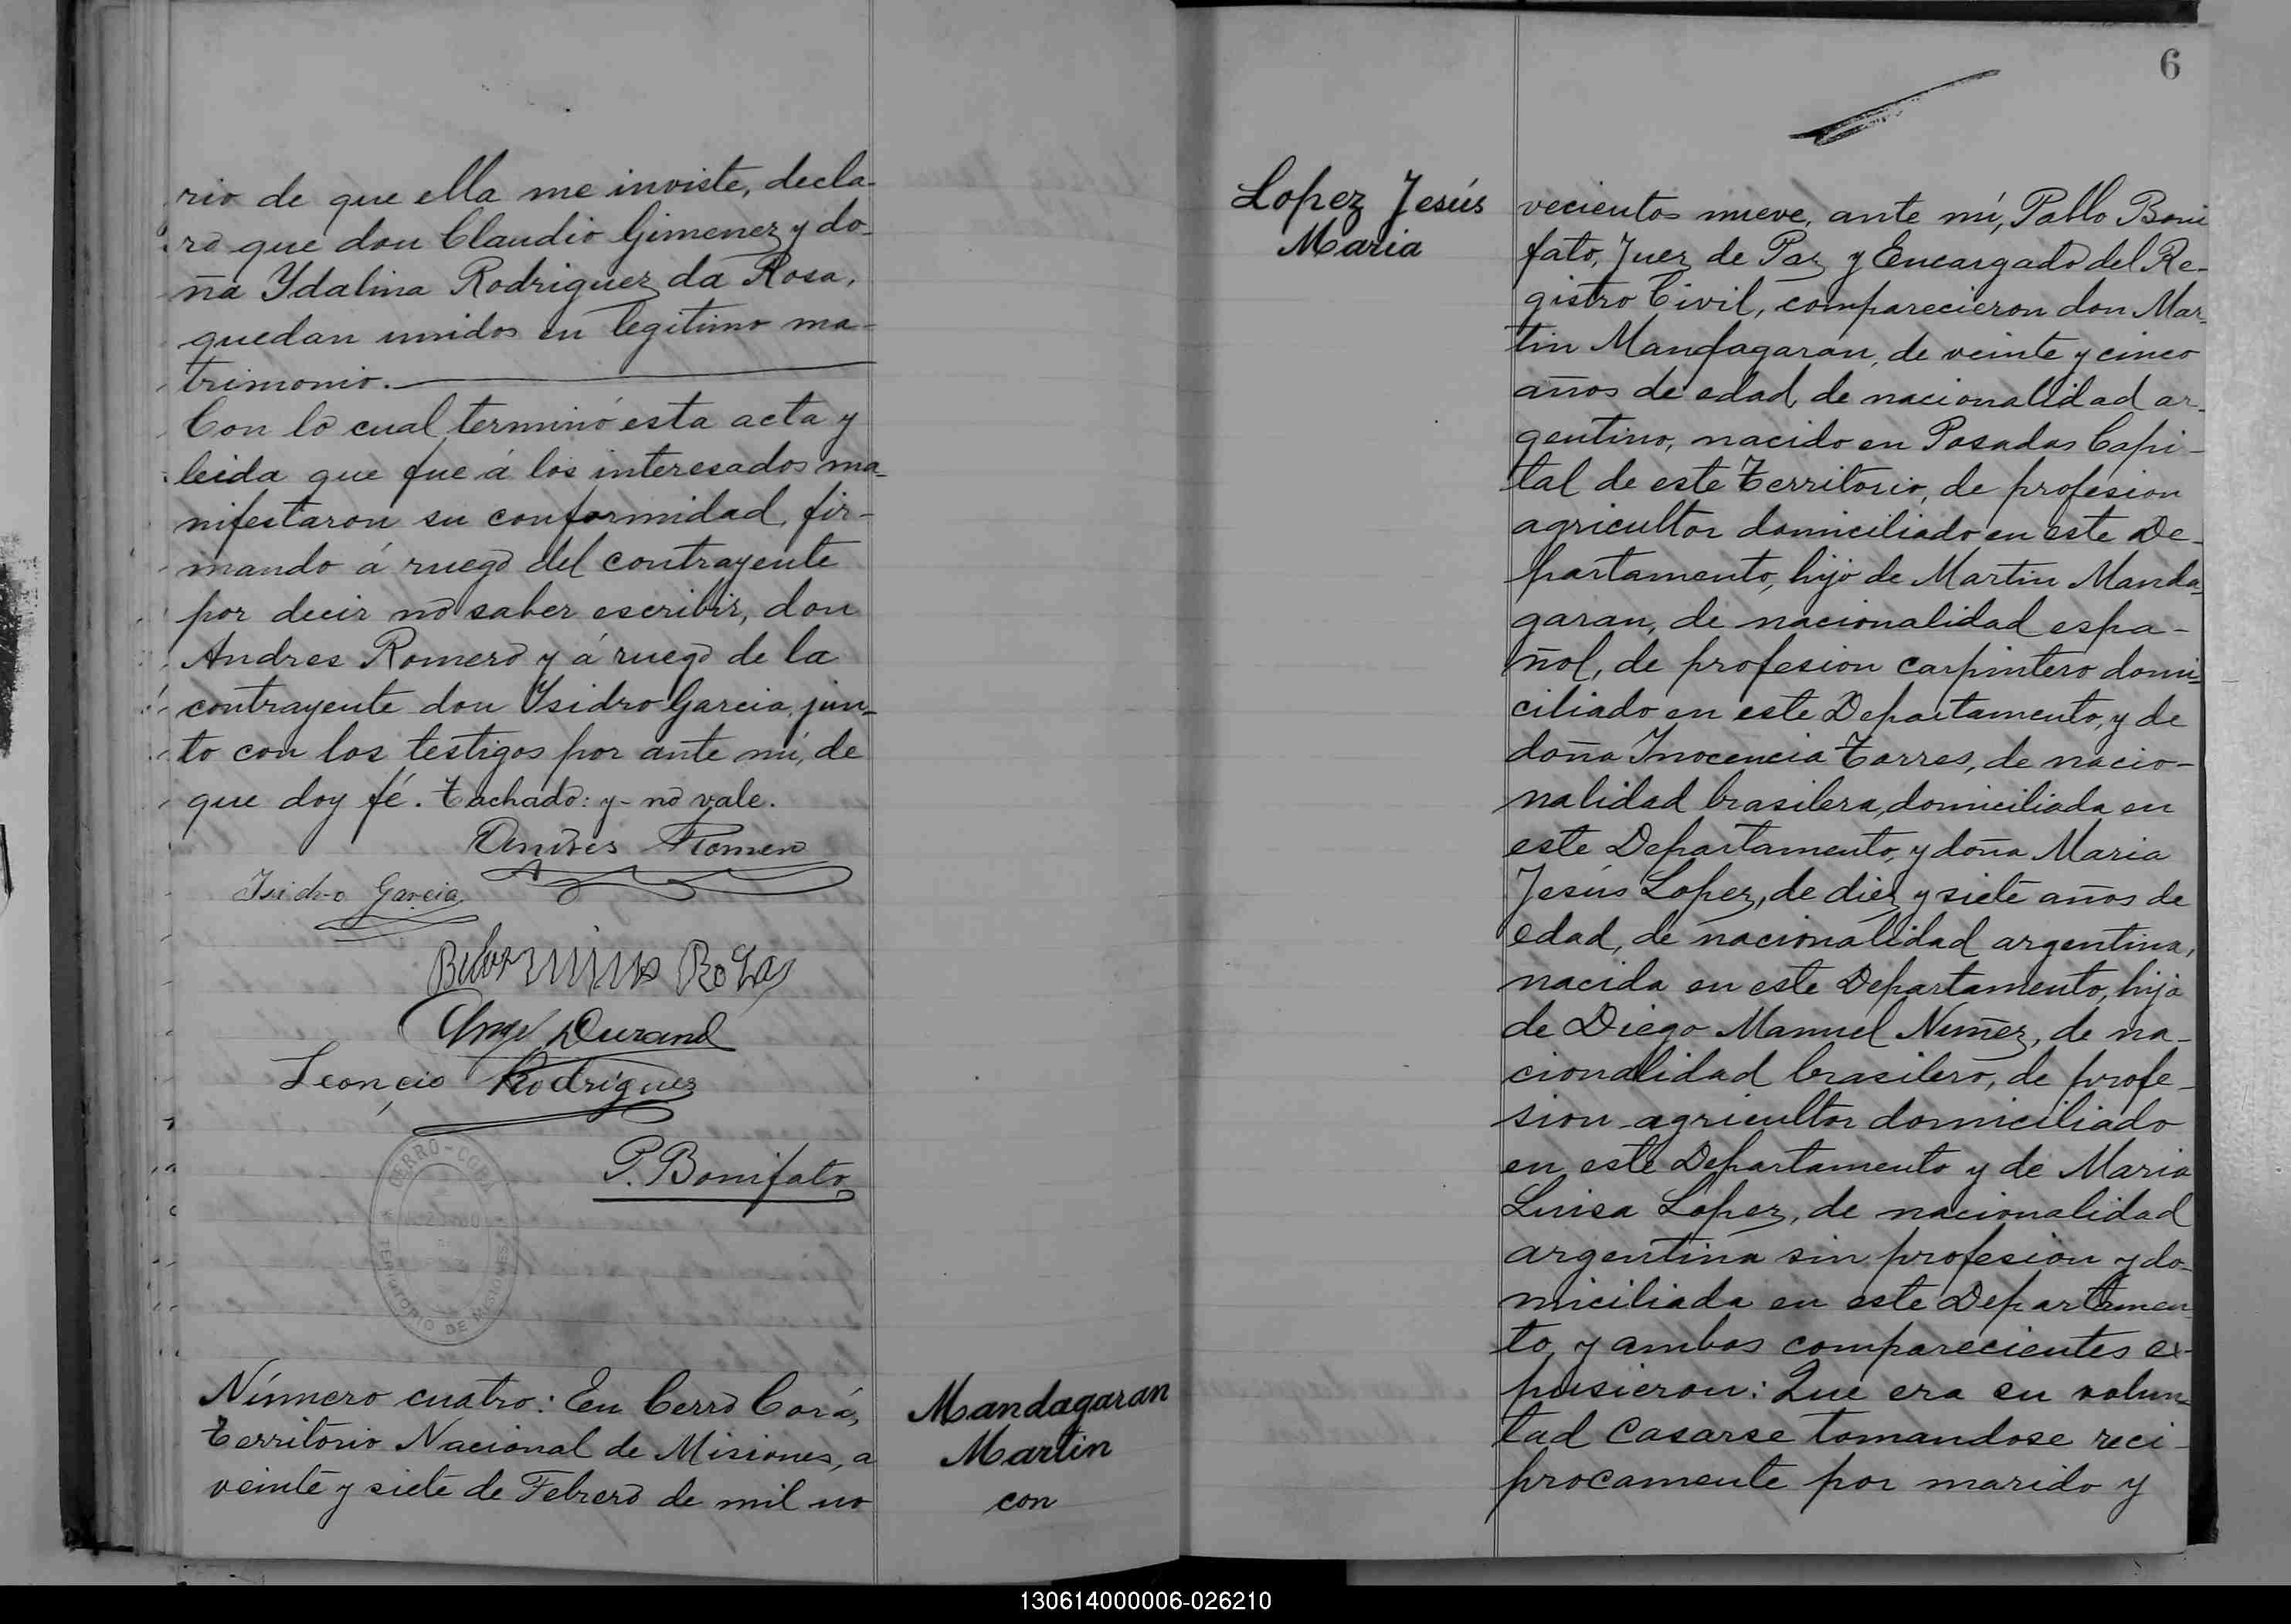 rio de que ella me inviste, decla-
ro que don Claudio Gimenez y do-
ña Ydalina Rodriguez da Rosa,
quedan unidos en legitimo ma-
trimonio.
Con lo cual terminó esta acta y
leida que fue á los interesados ma-
nifestaron su conformidad, fir-
mando á ruego del contrayente
por decir no saber escribir, don
Andres Romero y á ruego de la
contrayente don Ysidro Garcia, jun-
to con los testigos por ante mi, de
que doy fé. Tachado: y - no vale.
Andres Romero
Isidro Garcia
Rojas
Angel Durand
Leoncio Rodriguez
P. Bonifato
CERRO-CORÁ
JUZGADO
DE
PAZ
TERRITORIO DE MISIONES
Número cuatro: En Cerro Corá,
Territorio Nacional de Misiones, a
veinte y siete de Febrero de mil no
Mandagaran
Martin
con
6
Lopez Jesús
Maria
vecientos nueve, ante mí, Pablo Boni
fato, Juez de Paz y Encargado del Re-
gistro Civil, comparecieron don Mar-
tin Mandagaran, de veinte y cinco
años de edad, de nacionalidad ar-
gentino, nacido en Posadas Capi-
tal de este Territorio, de profesion
agricultor domiciliado en este De-
partamento, hijo de Martin Manda-
garan, de nacionalidad espa-
ñol, de profesion carpintero domi-
ciliado en este Departamento, y de
doña Inocencia Torres, de nacio-
nalidad brasilera, domiciliada en
este Departamento, y doña Maria
Jesús Lopez, de diez y siete años de
edad, de nacionalidad argentina,
nacida en este Departamento, hija
de Diego Manuel Nuñez, de na-
cionalidad brasilero, de profe-
sion agricultor domiciliado
en este Departamento y de Maria
Luisa Lopez, de nacionalidad
argentina sin profesion y do-
miciliada en este Departamen
to, y ambos comparecientes ex-
pusieron: Que era su volun-
tad casarse tomandose reci-
procamente por marido y
130614000006-026210